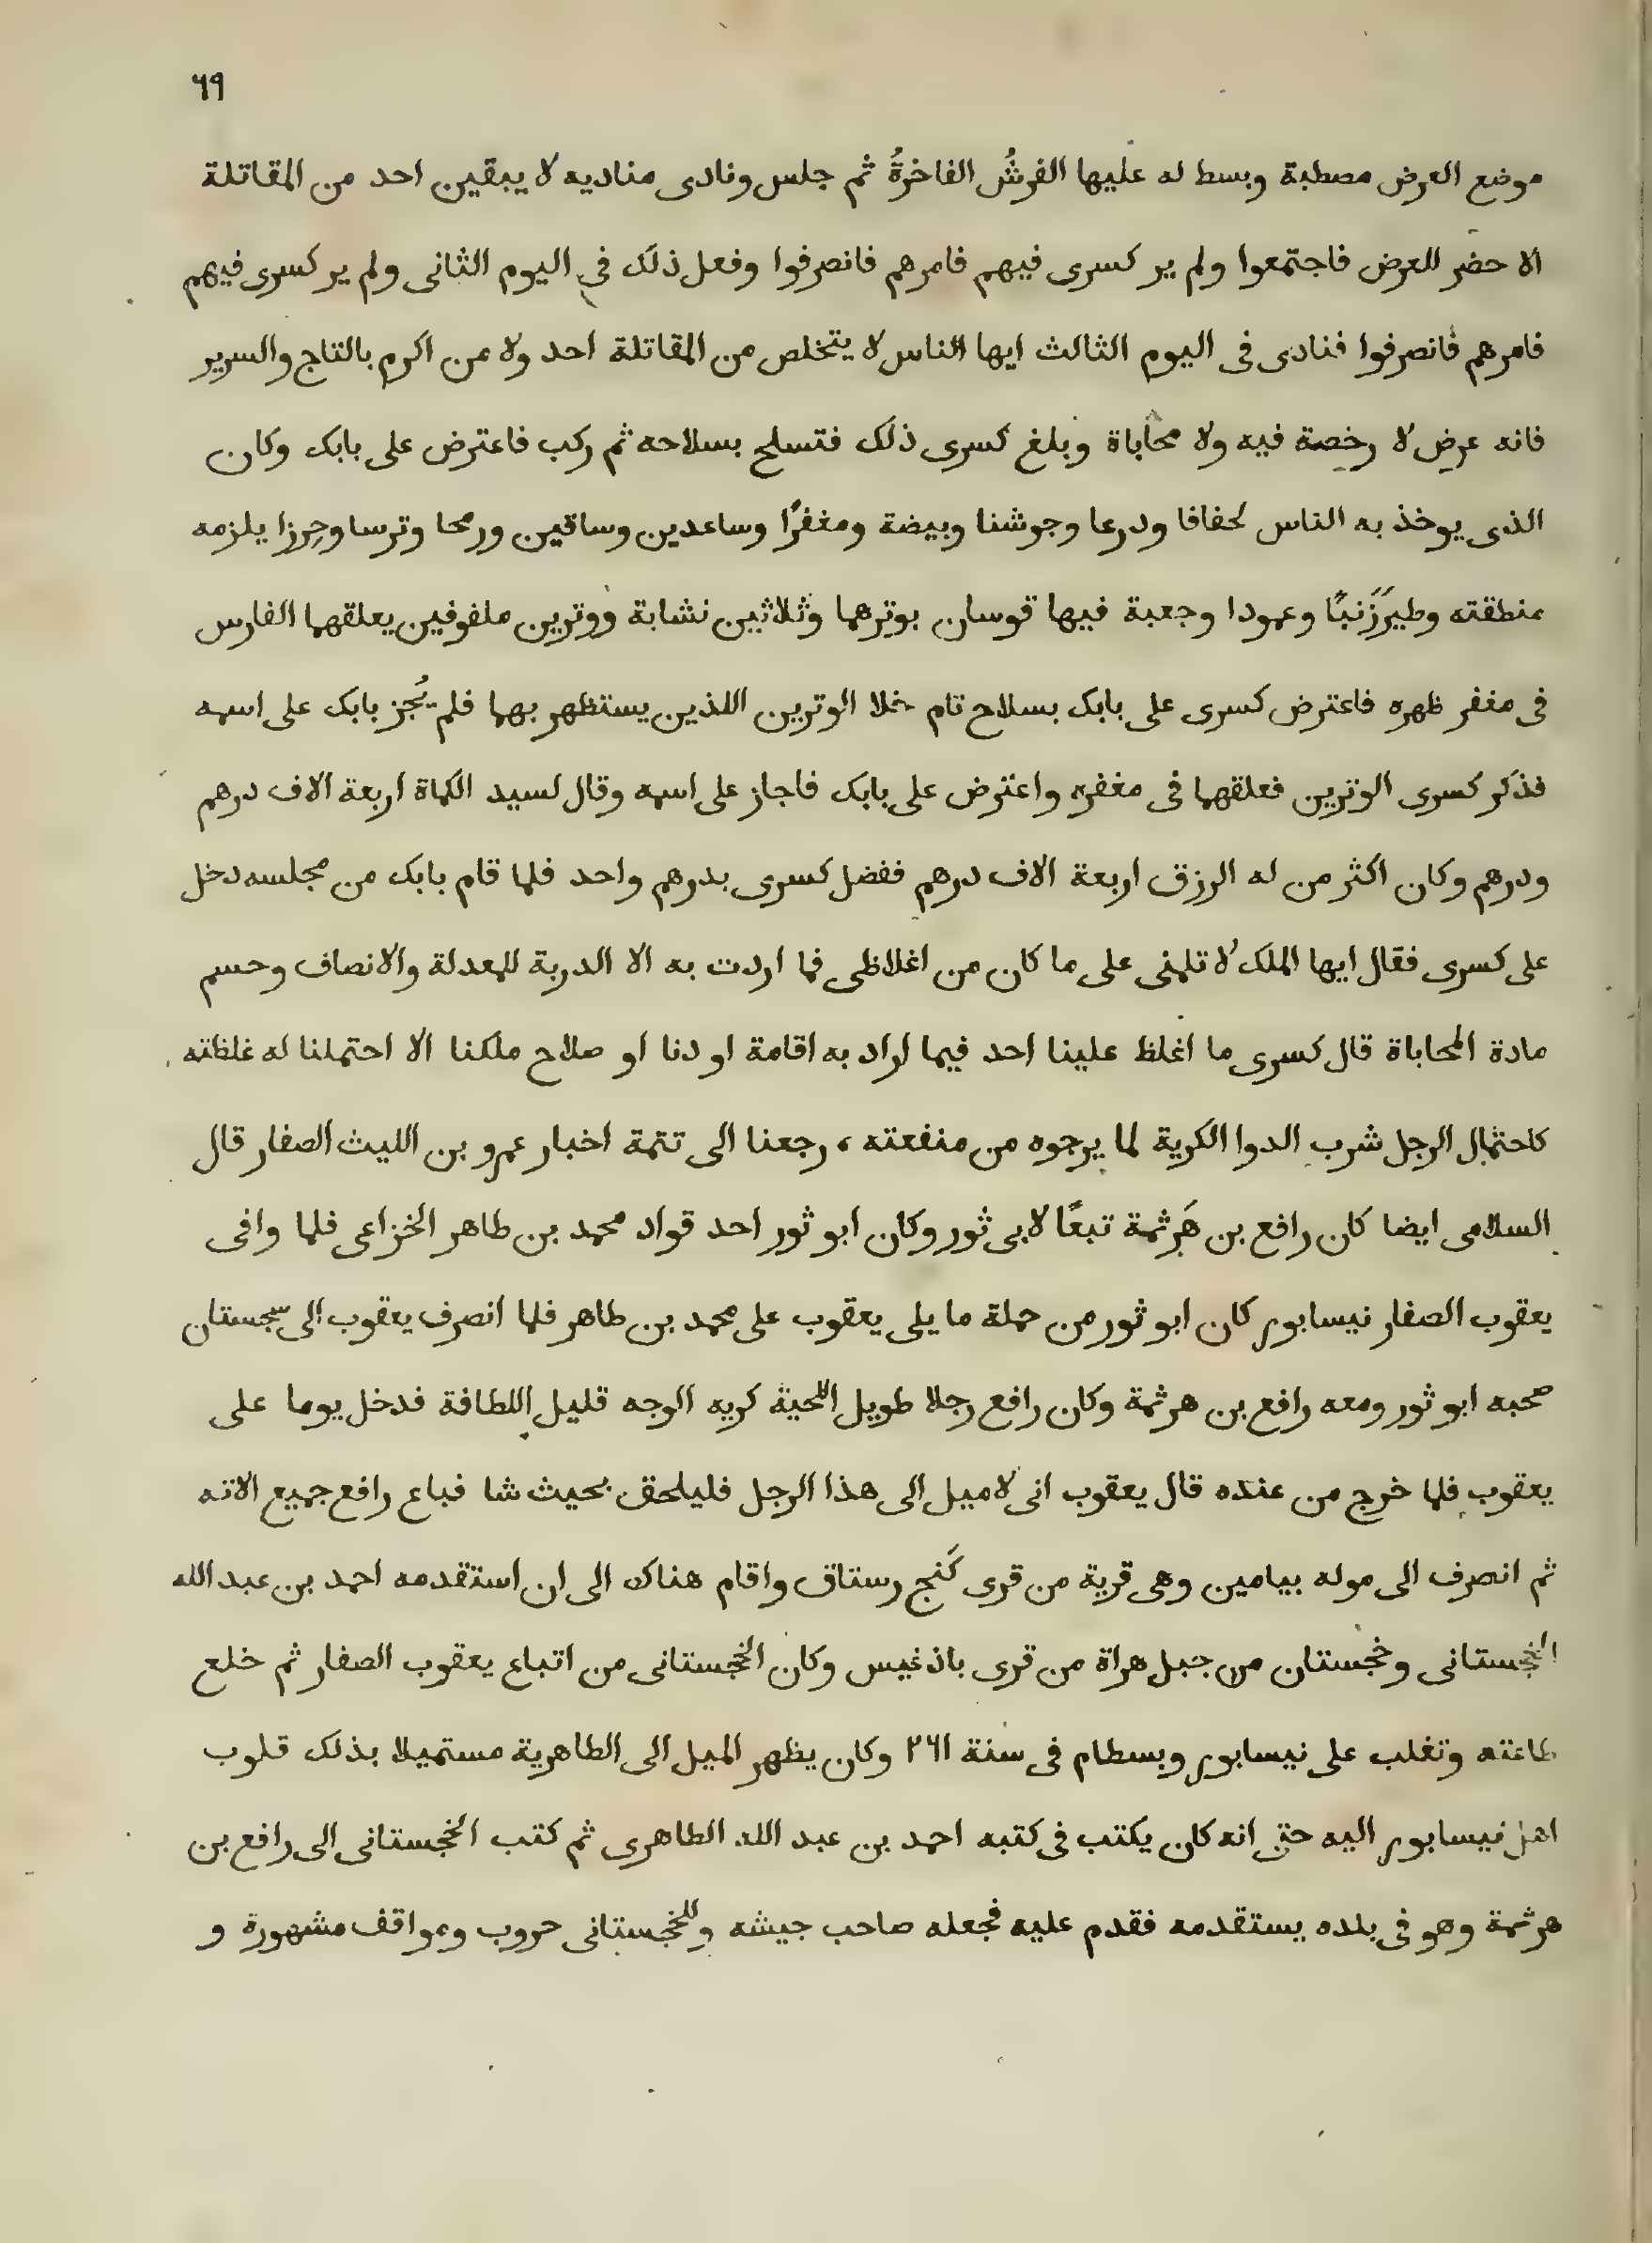 ٦٩
موضع العرض مصطبة وبسط له عليها الفرشُ الفاخرةُ ثم جلس ونادى مناديه لا يبقين احد من المقاتلة
الا حضر للعرض فاجتمعوا ولم ير كسرى فيهم فامرهم فانصرفوا وفعل ذلك فى اليوم الثانى ولم ير كسرى فيهم
فامرهم فانصرفوا فنادى فى اليوم الثالث ايها الناس لا يتخلص من المقاتلة احد ولا من اكرم بالتاج والسرير
فانه عرض لا رخصة فيه ولا محاباة وبلغ كسرى ذلك فتسلح بسلاحه ثم ركب فاعترض على بابك وكان
الذى يوخذ به الناس لحفافا ودرعا وجوشنا وبيضة ومغفرًا وساعدين وساقين ورمحا وترسا وحِرزا يلزمه
منطقته وطيَرَزَنبًا وعمودا وجعبة فيها قوسان بوترهما وثلاثين نشابة ووترين ملفوفين يعلقهما الفارس
فى مغفر ظهره فاعترض كسرى على بابك بسلاح تام خلا الوترين اللذين يستظهر بهما فلم يُجز بابك على اسمه
فذكر كسرى الوترين فعلقهما فى مغفره واعترض على بابك فاجاز على اسمه وقال لسيد الكماة اربعة الاف درهم
ودرهم وكان اكثر من له الرزق اربعة الاف درهم ففضل كسرى بدرهم واحد فلما قام بابك من مجلسه دخل
على كسرى فقال ايها الملك لا تلمنى على ما كان من اغلاظى فما اردت به الا الدربة للمعدلة والانصاف وحسم
مادة المحاباة قال كسرى ما اغلظ علينا احد فيما اراد به اقامة اودنا او صلاح ملكنا الا احتملنا له غلظته
كاحتمال الرجل شرب الدوا الكرية لما يرجوه من منفعته ، رجعنا الى تتمة اخبار عمرو بن الليث الصفار قال
السلامى ايضا كان رافع بن هَرثمة تبعًا لابى ثور وكان ابو ثور احد قواد محمد بن طاهر الخزاعى فلما وافى
يعقوب الصفار نيسابور كان ابو ثور من جملة ما يلى يعقوب على محمد بن طاهر فلما انصرف يعقوب الى سجستان
صحبه ابو ثور ومعه رافع بن هرثمة وكان رافع رجلا طويل اللحية كريه الوجه قليل اللطافة فدخل يوما على
يعقوب فلما خرج من عنده قال يعقوب انى لا ميل الى هذا الرجل فليلحق بحيث شا فباع رافع جميع الاته
ثم انصرف الى موله بيامين وهى قرية من قرى كَنج رستاق واقام هناك الى ان استقدمه احمد بن عبد الله
الخجستانى وخجستان من جبل هراة من قرى باذغيس وكان الخجستانى من اتباع يعقوب الصفار ثم خلع
طاعته وتغلب على نيسابور وبسطام فى سنة ٢٦١ وكان يظهر الميل الى الطاهرية مستميلا بذلك قلوب
اهل نيسابور اليه حتى انه كان يكتب فى كتبه احمد بن عبد الله الطاهرى ثم كتب الخجستانى الى رافع بن
هرثمة وهو فى بلده يستقدمه فقدم عليه فجعله صاحب جيشه وللخجستانى حروب ومواقف مشهورة و